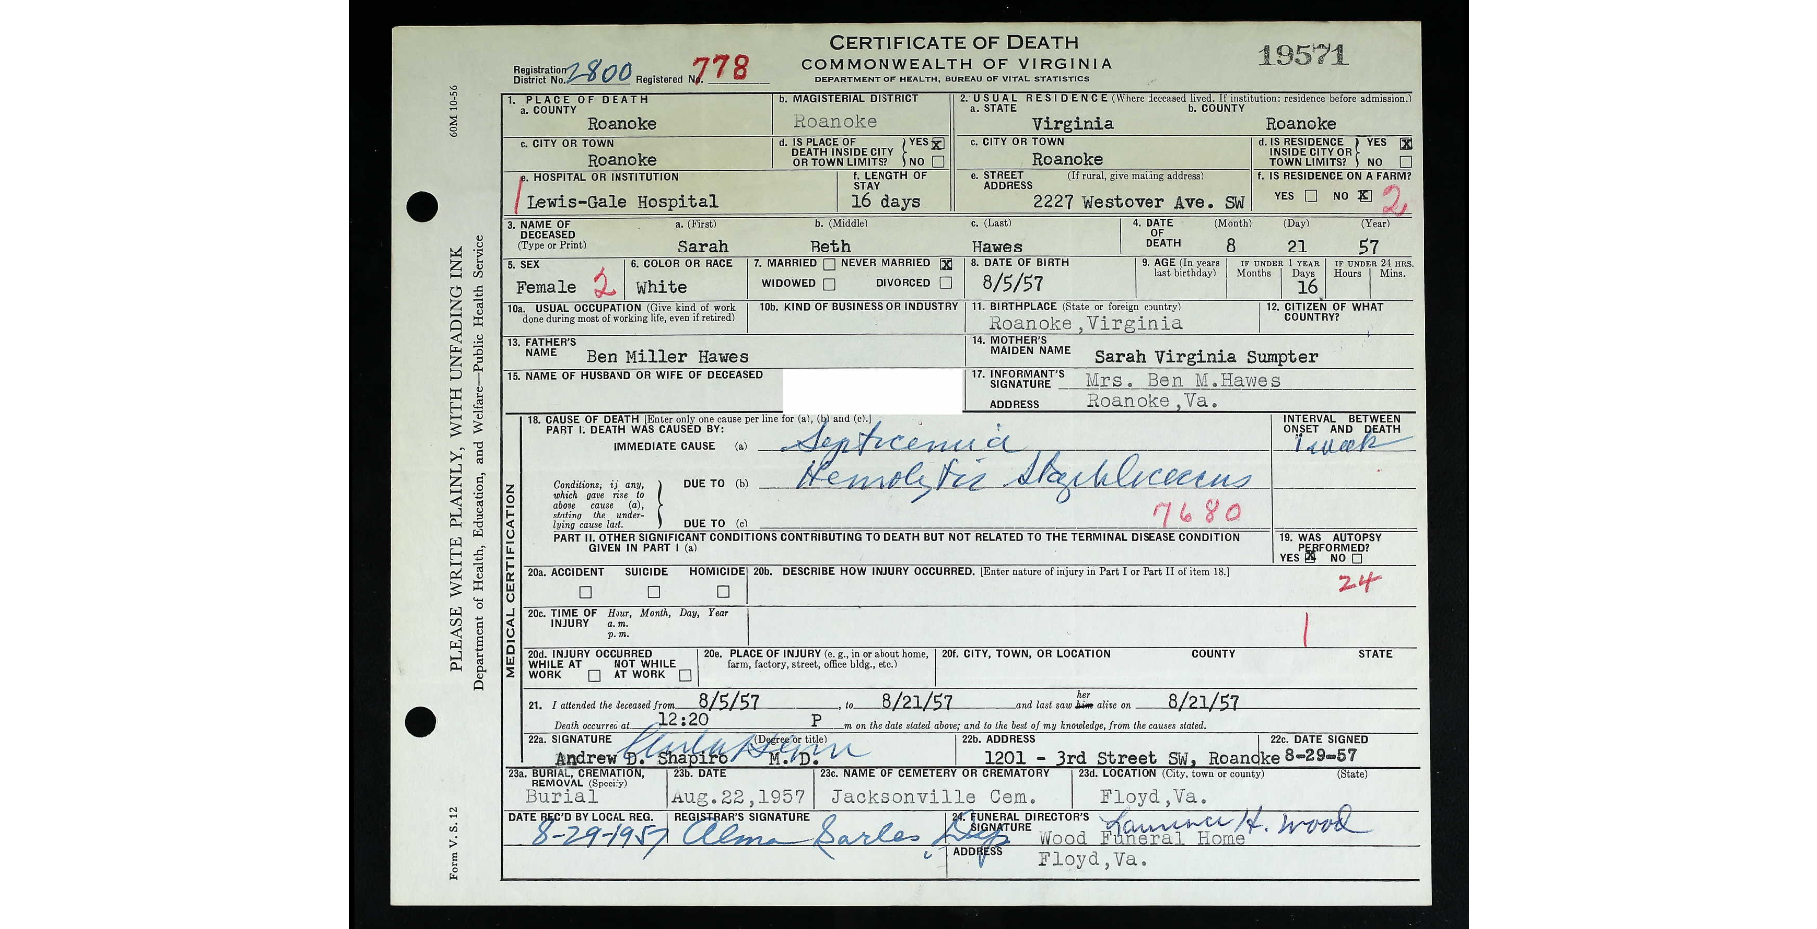 CERTIFICATE OF DEATH
COMMONWEALTH OF VIRGINIA
DEPARTMENT OF HEALTH, BUREAU OF VITAL STATISTICS
19571
Registration District No. 2800 Registered No. 778
60M 10-56
PLEASE WRITE PLAINLY, WITH UNFADING INK
Department of Health, Education, and Welfare—Public Health Service
Form V. S. 12
1. PLACE OF DEATH
a. COUNTY
Roanoke
b. MAGISTERIAL DISTRICT
Roanoke
2. USUAL RESIDENCE (Where deceased lived. If institution: residence before admission.)
a. STATE
Virginia
b. COUNTY
Roanoke
c. CITY OR TOWN
Roanoke
d. IS PLACE OF DEATH INSIDE CITY OR TOWN LIMITS? YES X NO
c. CITY OR TOWN
Roanoke
d. IS RESIDENCE INSIDE CITY OR TOWN LIMITS? YES X NO
e. HOSPITAL OR INSTITUTION
Lewis-Gale Hospital
f. LENGTH OF STAY
16 days
e. STREET ADDRESS (If rural, give mailing address)
2227 Westover Ave. SW
f. IS RESIDENCE ON A FARM?
YES NO X 2
3. NAME OF DECEASED (Type or Print)
a. (First) b. (Middle) c. (Last)
Sarah Beth Hawes
4. DATE OF DEATH (Month) (Day) (Year)
8 21 57
5. SEX
Female 2
6. COLOR OR RACE
White
7. MARRIED NEVER MARRIED X
WIDOWED DIVORCED
8. DATE OF BIRTH
8/5/57
9. AGE (In years last birthday)
IF UNDER 1 YEAR
Months Days
16
IF UNDER 24 HRS.
Hours Mins.
10a. USUAL OCCUPATION (Give kind of work done during most of working life, even if retired)
10b. KIND OF BUSINESS OR INDUSTRY
11. BIRTHPLACE (State or foreign country)
Roanoke,Virginia
12. CITIZEN OF WHAT COUNTRY?
13. FATHER'S NAME
Ben Miller Hawes
14. MOTHER'S MAIDEN NAME
Sarah Virginia Sumpter
15. NAME OF HUSBAND OR WIFE OF DECEASED
17. INFORMANT'S SIGNATURE Mrs. Ben M.Hawes
ADDRESS Roanoke,Va.
MEDICAL CERTIFICATION
18. CAUSE OF DEATH [Enter only one cause per line for (a), (b) and (c).]
PART I. DEATH WAS CAUSED BY:
IMMEDIATE CAUSE (a) Septicemia
INTERVAL BETWEEN ONSET AND DEATH
1 week
Conditions, if any, which gave rise to above cause (a), stating the underlying cause last.
DUE TO (b) Hemolytic Staphlococcus
DUE TO (c)
7680
PART II. OTHER SIGNIFICANT CONDITIONS CONTRIBUTING TO DEATH BUT NOT RELATED TO THE TERMINAL DISEASE CONDITION GIVEN IN PART I (a)
19. WAS AUTOPSY PERFORMED?
YES X NO
20a. ACCIDENT SUICIDE HOMICIDE
20b. DESCRIBE HOW INJURY OCCURRED. [Enter nature of injury in Part I or Part II of item 18.]
24
20c. TIME OF INJURY Hour, Month, Day, Year
a. m.
p. m.
20d. INJURY OCCURRED
WHILE AT WORK NOT WHILE AT WORK
20e. PLACE OF INJURY (e. g., in or about home, farm, factory, street, office bldg., etc.)
20f. CITY, TOWN, OR LOCATION COUNTY STATE
21. I attended the deceased from 8/5/57, to 8/21/57 and last saw him her alive on 8/21/57
Death occurred at 12:20 P m on the date stated above; and to the best of my knowledge, from the causes stated.
22a. SIGNATURE (Degree or title)
Andrew D. Shapiro M.D.
22b. ADDRESS
1201 - 3rd Street SW, Roanoke
22c. DATE SIGNED
8-29-57
23a. BURIAL, CREMATION, REMOVAL (Specify)
Burial
23b. DATE
Aug.22,1957
23c. NAME OF CEMETERY OR CREMATORY
Jacksonville Cem.
23d. LOCATION (City, town or county) (State)
Floyd,Va.
DATE REC'D BY LOCAL REG.
8-29-1957
REGISTRAR'S SIGNATURE
Alma Sarles Dep
24. FUNERAL DIRECTOR'S SIGNATURE Lawrence H. Wood
Wood Funeral Home
ADDRESS Floyd,Va.